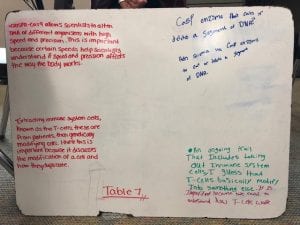 CRISPR-Cas9 allows scientists to alter
DNA of different organisms with high
speed and precision. This is important
because certain speeds help scientists
understand if speed and precision affects
the way the body works.
Cas9 enzyme that cuts or
adds a segment of DNA
DNA
Extracting immune system cells,
known as the T-cells; these are
from patients, then genetically
modifying cells. I believe this is
important because it discusses
the modification of a cell and how
they duplicate.
An ongoing trail
That includes taking
out immune system
cells, I guess that
T-cells basically modify
into something else. It is
important because we need to
understand how T-cells work
Table 7